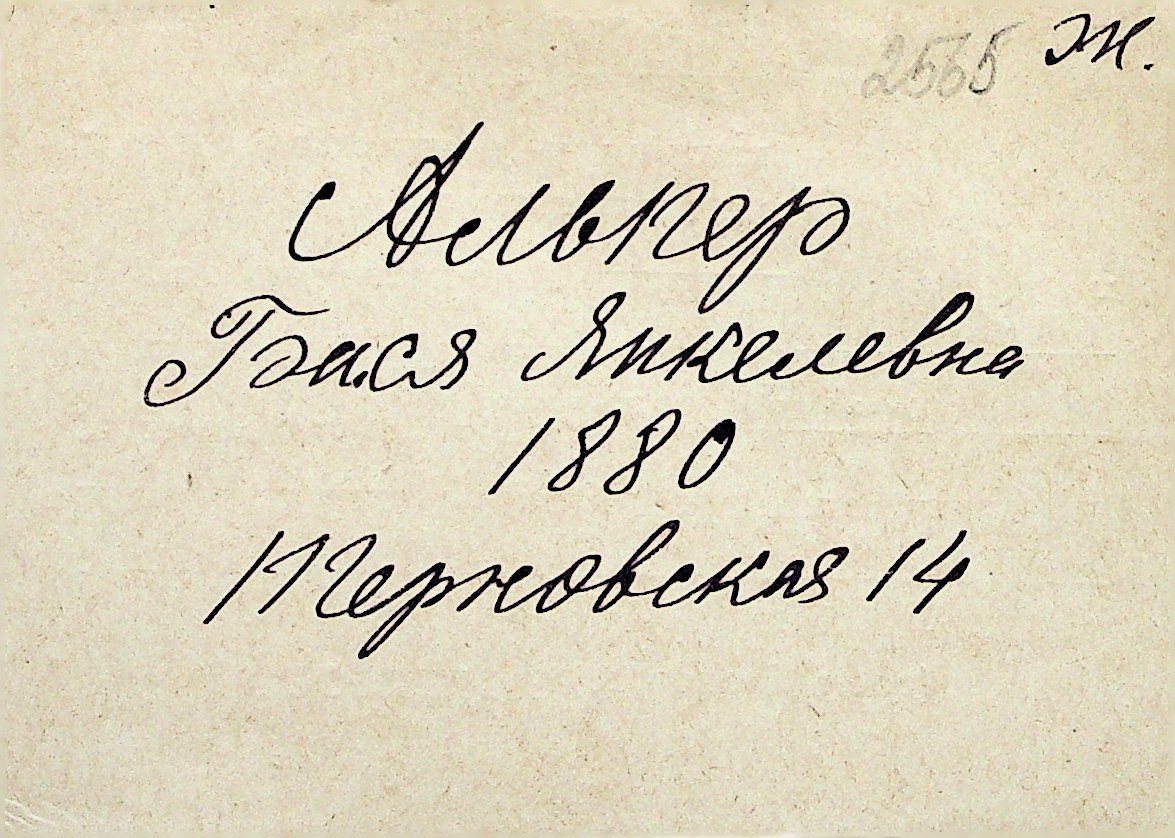 Ж.
Альпер
Бася Янкелевна
1880
Перновская 14